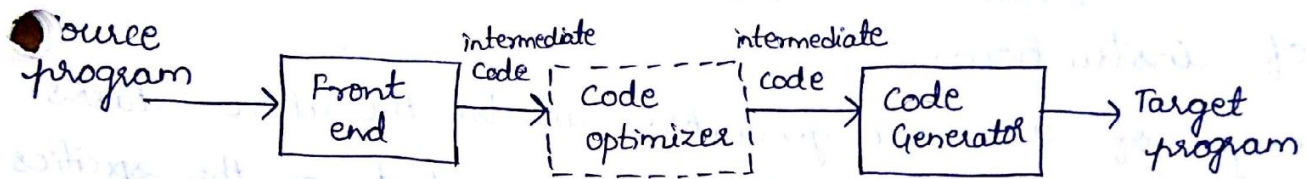 ource
program
Front
end
intermediate
code
code
optimizer
intermediate
code
Code
Generator
Target
program